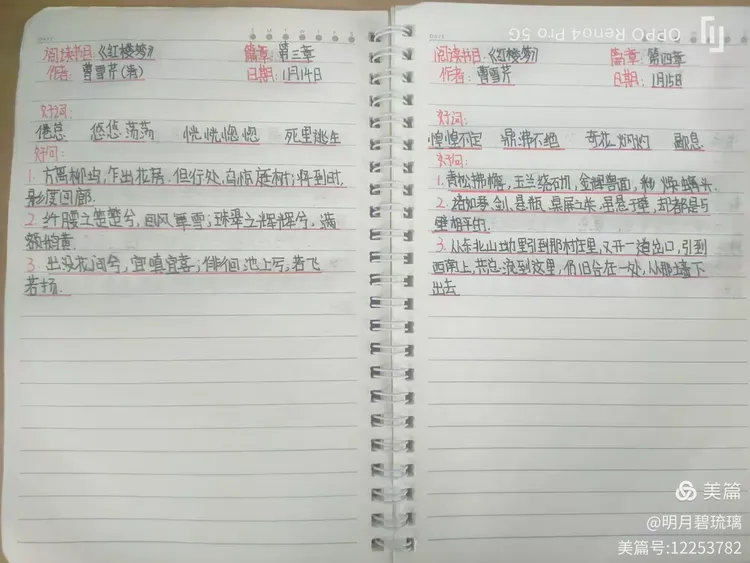 阅读书目：《红楼梦》 篇章：第三章
作者：曹雪芹（清） 日期：11月14日
好词：
倦怠 悠悠荡荡 恍恍惚惚 死里逃生
好句：
1. 方离柳坞，乍出花房。但行处，鸟惊庭树；将到时，
影度回廊。
2. 纤腰之楚楚兮，回风舞雪；珠翠之辉辉兮，满
额鹅黄。
3. 出没花间兮，宜嗔宜喜；徘徊池上兮，若飞
若扬。
阅读书目：《红楼梦》 篇章：第四章
作者：曹雪芹 日期：11月15日
好词：
惶惶不定 鼎沸不绝 奇花 歔息
好句：
1. 青松拂檐，玉兰绕砌，金辉兽面，彩焕螭头。
2. 诸如琴、剑、悬瓶、桌屏之类，虽悬于壁，却都是与
壁相平的。
3. 从东北山坳里引到那村庄里，又开一道岔口，引到
西南上，共总流到这里，仍旧合在一处，从那墙下
出去
OPPO Reno4 Pro 5G
美篇
@明月碧琉璃
美篇号:12253782